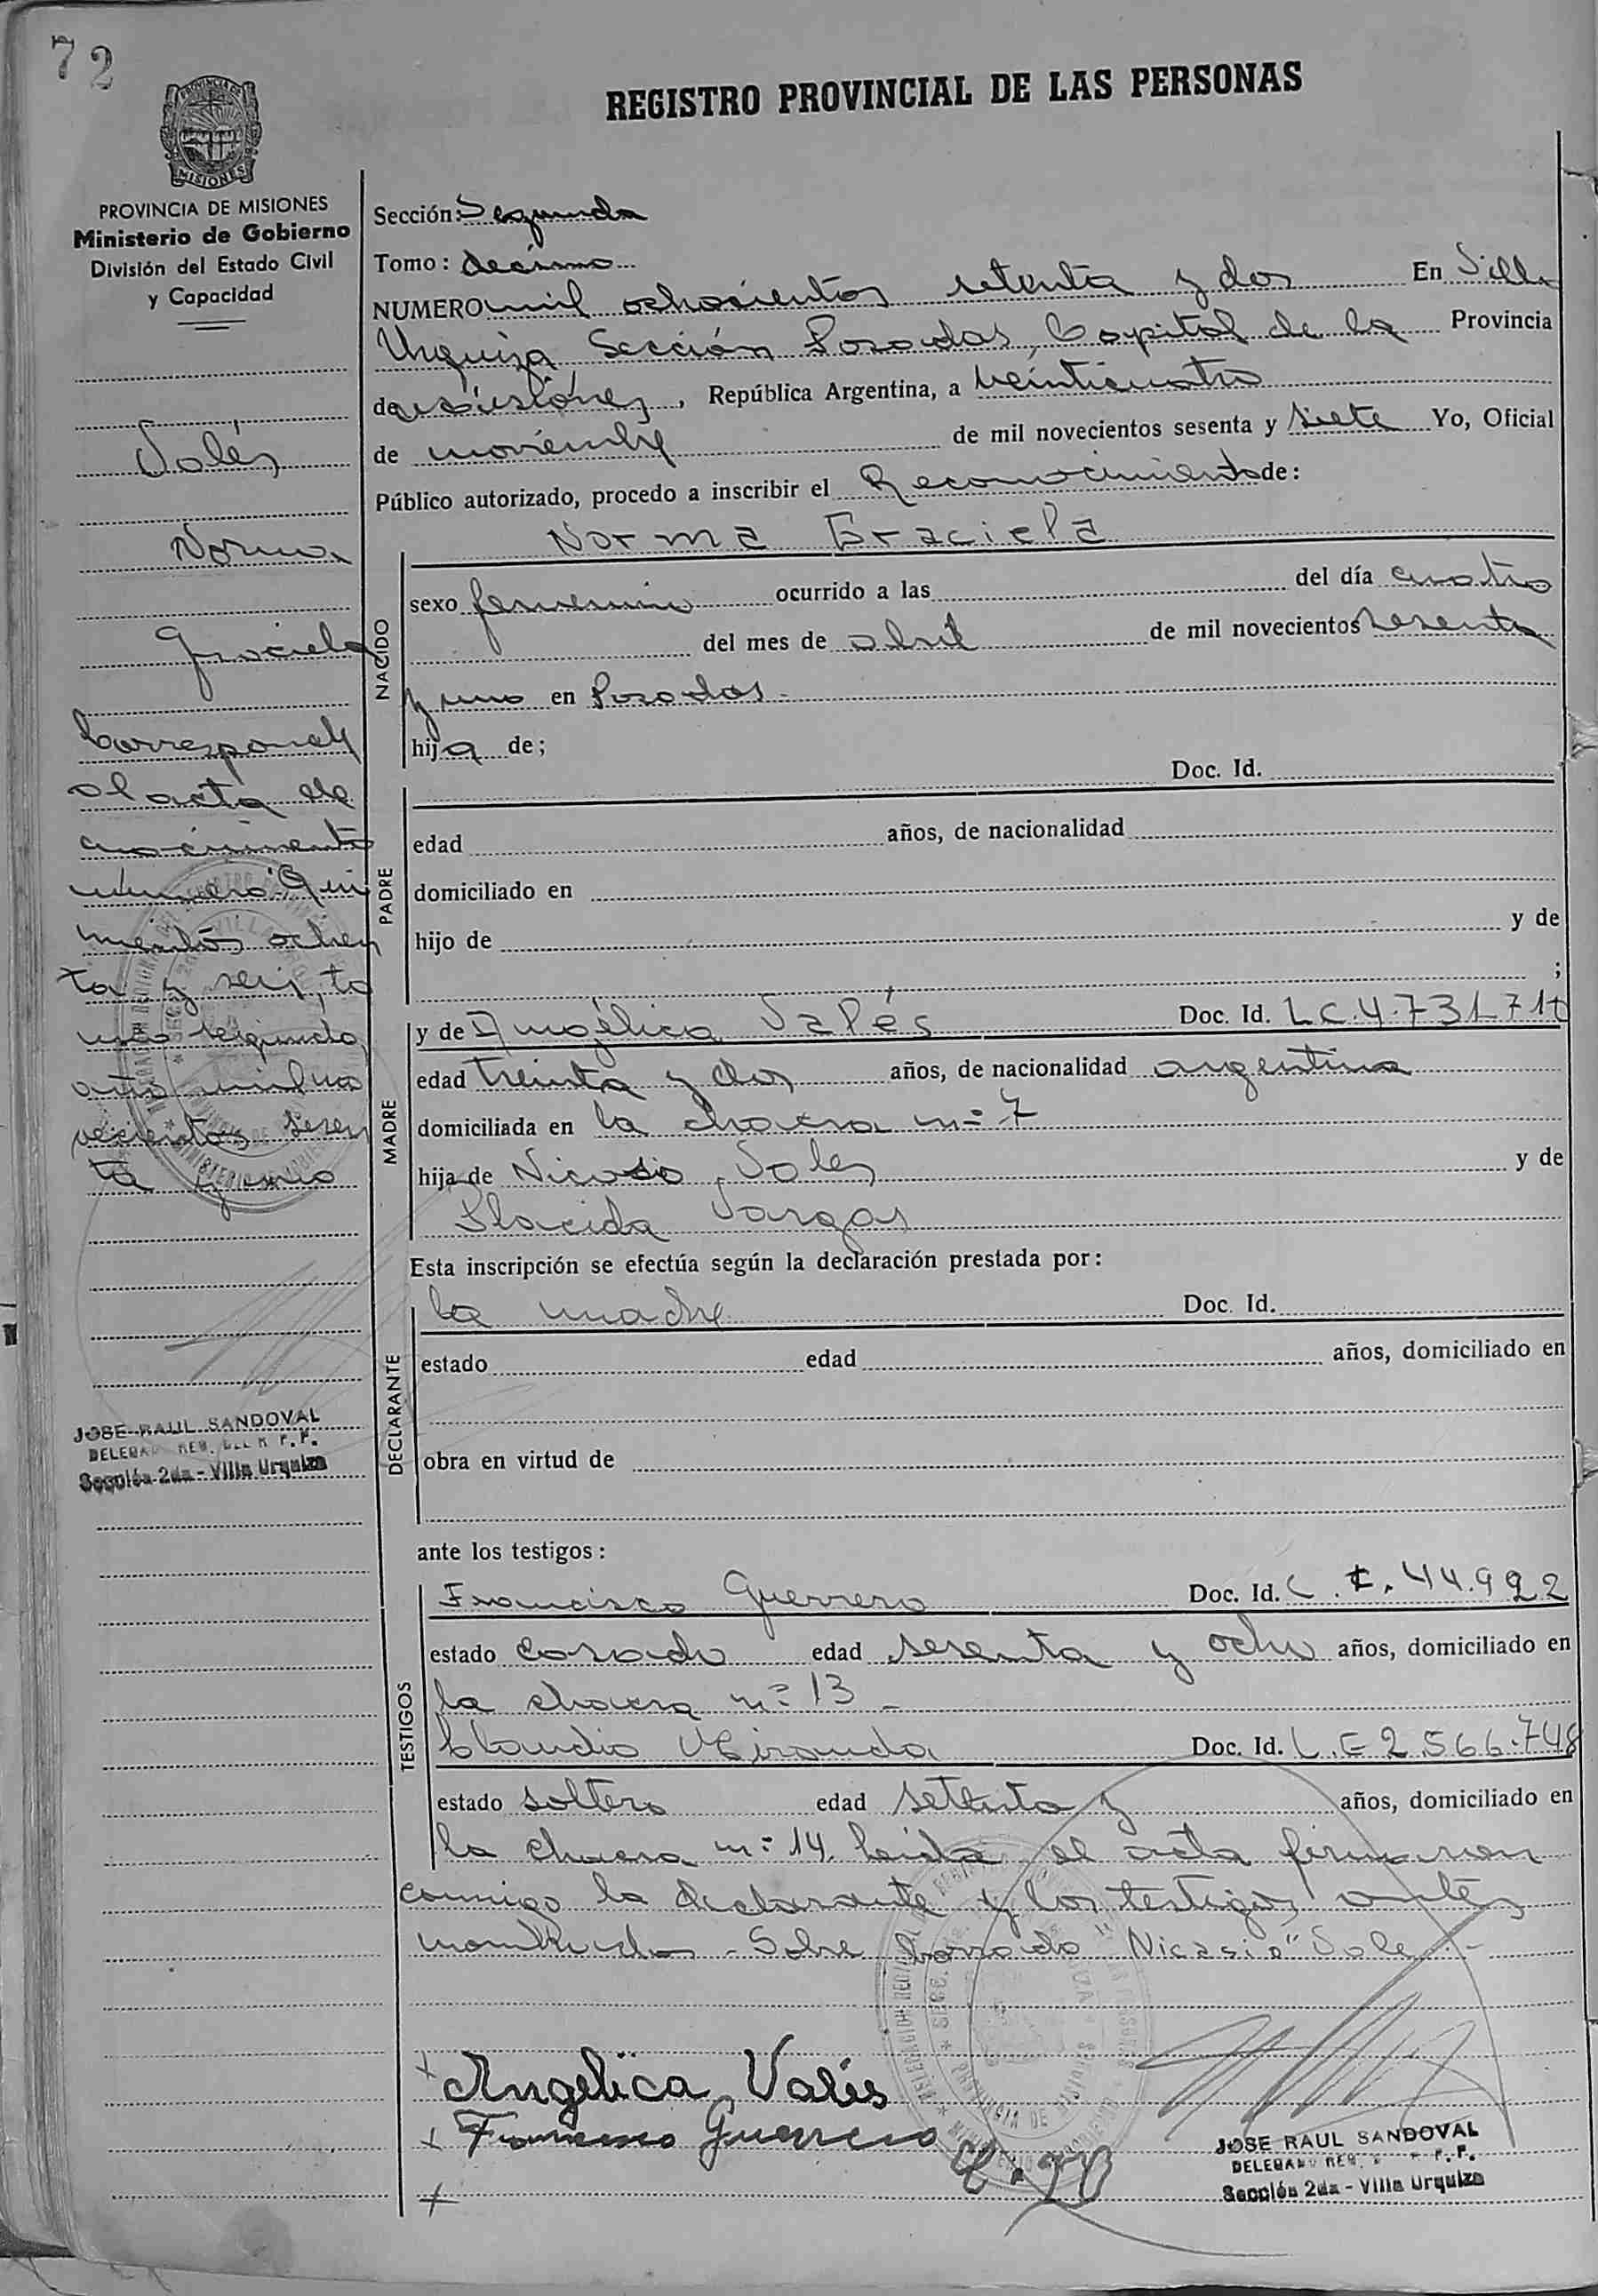 72
REGISTRO PROVINCIAL DE LAS PERSONAS
PROVINCIA DE MISIONES
MISIONES
PROVINCIA DE MISIONES
Ministerio de Gobierno
División del Estado Civil
y Capacidad
Valés
Norma
Graciela
Corresponde
al acta de
nacimiento
número Qui
nientos ochen
ta y seis, to
mo segundo
año mil no
vecientos sesen
ta y uno
JOSE RAUL SANDOVAL
Sección 2da - Villa Urquiza
Sección: Segunda
Tomo: decimo
NUMERO mil ochocientos setenta y dos En Villa
Urquiza Sección Posadas, Capital de la Provincia
de Misiones, República Argentina, a veinticuatro
de noviembre de mil novecientos sesenta y siete Yo, Oficial
Público autorizado, procedo a inscribir el Reconocimiento de:
Norma Graciela
NACIDO
sexo femenino ocurrido a las del día cuatro
del mes de abril de mil novecientos sesenta
y uno en Posadas.-
hija de;
Doc. Id.
PADRE
edad años, de nacionalidad
domiciliado en
hijo de y de
;
MADRE
y de Angélica Valés Doc. Id. L.C.4.731.710
edad treinta y dos años, de nacionalidad argentina
domiciliada en la chacra nº 7
hija de Nicasio Vales y de
Placida Vargas
Esta inscripción se efectúa según la declaración prestada por:
DECLARANTE
la madre Doc. Id.
estado edad años, domiciliado en
obra en virtud de
ante los testigos:
TESTIGOS
Francisco Guerrero Doc. Id. C.I. 44.922
estado casado edad sesenta y ocho años, domiciliado en
la chacra nº 13 -
Claudio Miranda Doc. Id. L.E 2.566.748
estado soltero edad setenta y años, domiciliado en
la chacra nº 14. Leída el acta firmaron
conmigo la declarante y los testigos antes
nombrados - Sobre borrado "Nicasio" Vale.-
+ Angelica Valés
+ Francisco Guerrero
+
JOSE RAUL SANDOVAL
Sección 2da - Villa Urquiza